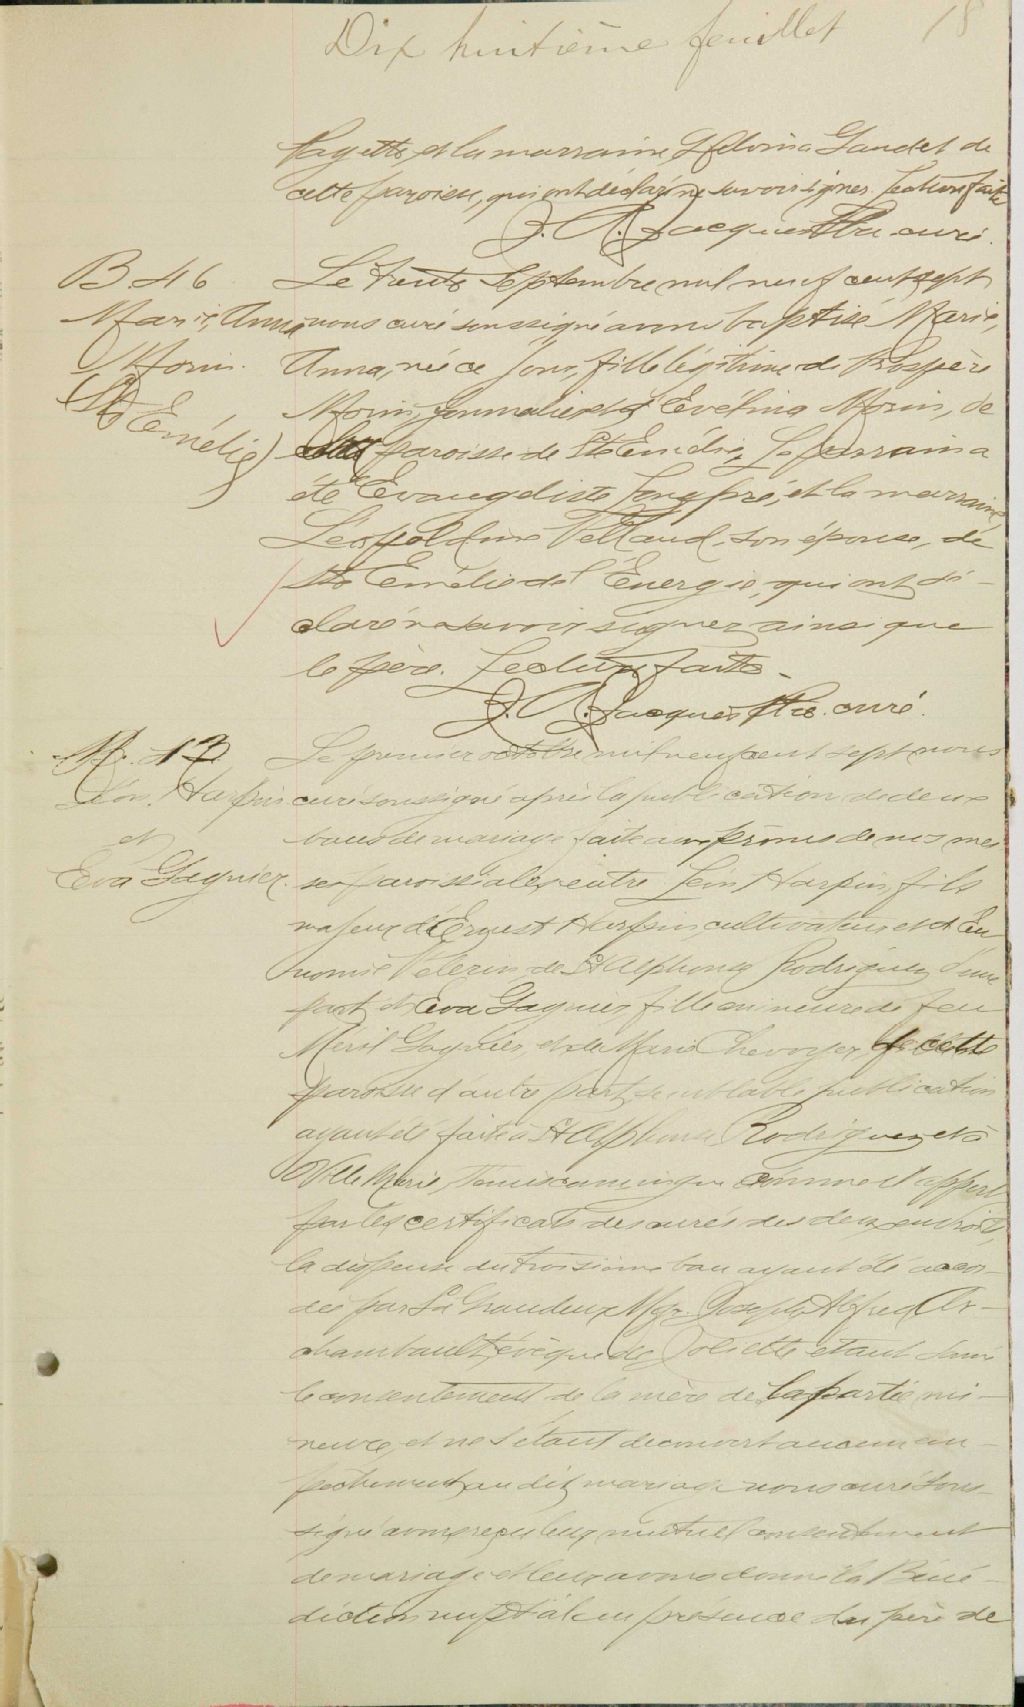 Dix huitième feuillet
18
Payette, et la marraine Zelvina Gaudet de
cette paroisse, qui ont déclaré ne savoir signer. Lecture faite
J. A. Jacques Ptre curé.
B 46
Marie, Anna
Morin.
(Ste Emélie)
Le trente Septembre mil neuf cent sept
nous curé soussigné avons baptisé Marie,
Anna, née ce jour, fille légitime de Prospère
Morin, journalier et d' Evélina Morin, de
la paroisse de Ste Emélie. Le parrain a
été Evangéliste Longpré, et la marraine
Léopoldine Pelland, son épouse, de
Ste Emélie de l'Énergie, qui ont dé-
claré ne savoir signer ainsi que
le père. Lecture faite.
J. A. Jacques Ptre. curé.
M. 13
Léon Harpin
et
Eva Gagnier.
Le premier octobre mil neuf cent sept nous
curé soussigné après la publication de deux
bans de mariage faite aux prônes de nos mes
ses paroissiales entre Léon Harpin, fils
majeur d'Ernest Harpin, cultivateur et d'Eu
nomie Pelerin de St Alphonse Rodriguez d'une
part, et Eva Gagnier fille mineure de feu
Meril Gagnier, et de Marie Chevoyer, de cette
paroisse d'autre part, semblable publication
ayant été faite à St Alphonse Rodriguez et à
Ville Marie, Temiscamingue comme il appert
par les certificats des curés des deux endroits,
la dispense du troisième ban ayant été accor-
dée par Sa Grandeur Mgr. Joseph Alfred Ar-
chambault, évêque de Joliette étant donné
le consentement de la mère de la partie mi-
neure, et ne s'étant découvert aucun em-
pêchement au dit mariage nous curé sous-
signé avons reçu leur mutuel consentement
de mariage et leur avons donné la Béné-
diction nuptiale en présence du père de